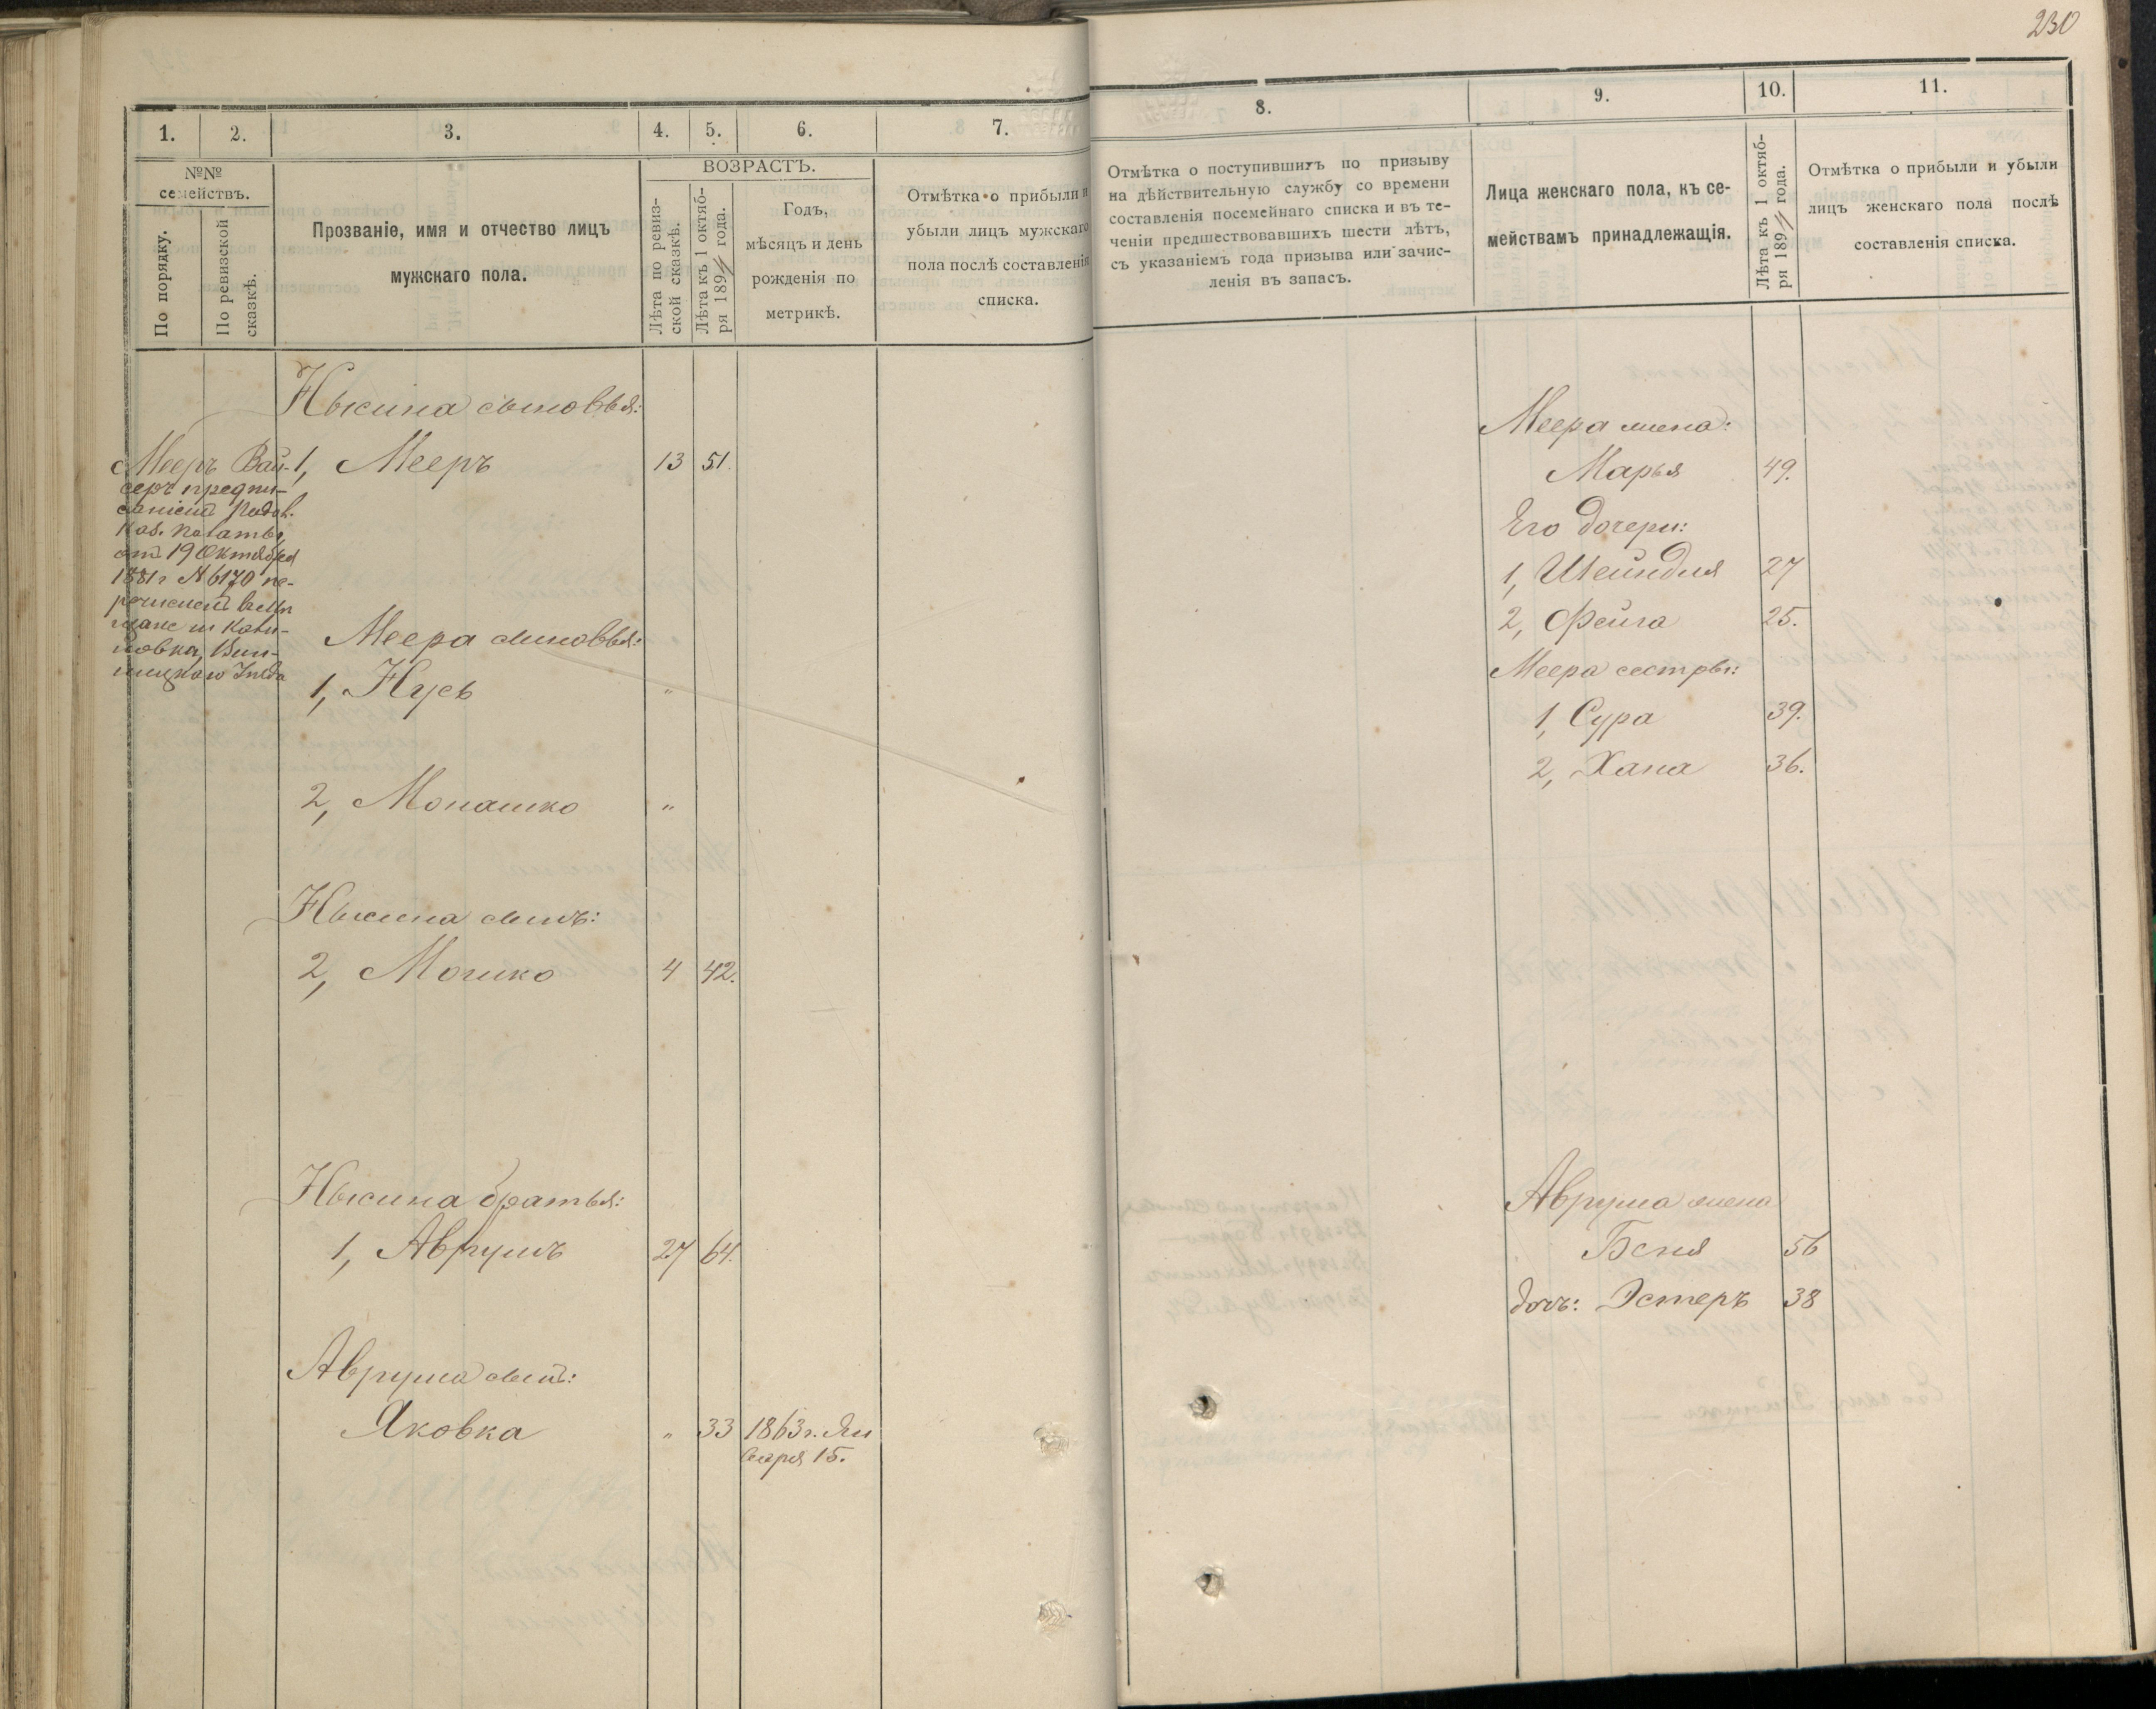 230
1.
2.
3.
4.
5.
6.
7.
№№
семействъ.
По порядку.
По ревизской
сказкѣ.
Прозваніе, имя и отчество лицъ
мужскаго пола.
ВОЗРАСТЪ.
Лѣта по ревиз-
ской сказкѣ.
Лѣта къ 1 октяб-
ря 189 года.
Годъ,
мѣсяцъ и день
рожденія по
метрикѣ.
Отмѣтка о прибыли и
убыли лицъ мужскаго
пола послѣ составленія
списка.
Нысина сыновья:
Мееръ Вай-
серъ предпи-
саніемъ Подол.
Каз. Палаты
отъ 19 Октября
1881 г N 6170 пе-
речисленъ въ мѣ
щане м
Вин-
ницкаго Уѣзда
1, Мееръ 13 51.
Меера сыновья:
1, Нусь "
2, Монашко "
Нысина сынъ:
2, Мошко 4 42.
Нысина братья:
1, Аврумъ 27 64.
Аврума сынъ:
Яковка " 33 1863 г. Ян
варя 15.
8.
9.
10.
11.
Отмѣтка о поступившихъ по призыву
на дѣйствительную службу со времени
составленія посемейнаго списка и въ те-
ченіи предшествовавшихъ шести лѣтъ,
съ указаніемъ года призыва или зачис-
ленія въ запасъ.
Лица женскаго пола, къ се-
мействамъ принадлежащія.
Лѣта къ 1 октяб-
ря 189 года.
Отмѣтка о прибыли и убыли
лицъ женскаго пола послѣ
составленія списка.
Меера жена:
Марья 49.
Его дочери:
1, Шейндля 27
2, Фейга 25.
Меера сестры:
1, Сура 39.
2, Хана 36.
Аврума жена
Бася 56
дочь: Эстеръ 38